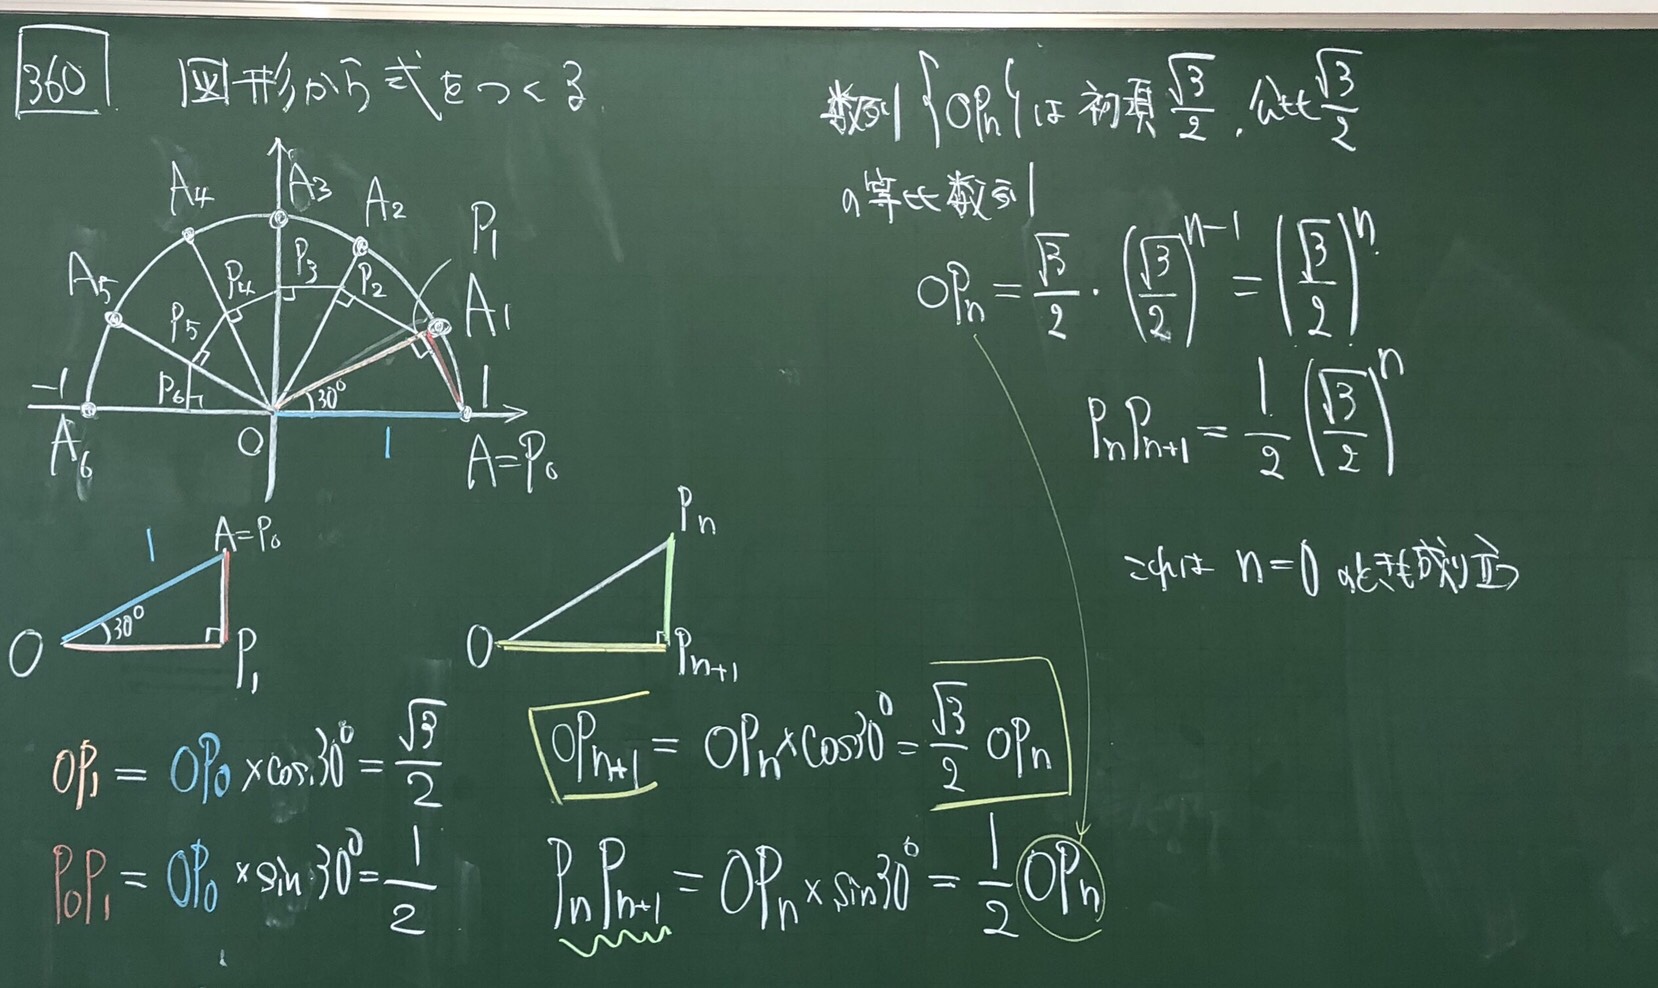 360 図形から式をつくる
A4 A3 A2
P1
A5 P4 P3 P2 A1
P5
-1 P6 30° 1
A6 O 1 A=P0
1 A=P0
30°
O P1
Pn
O Pn+1
OP1 = OP0 × cos30° = √3/2
P0P1 = OP0 × sin30° = 1/2
OPn+1 = OPn × cos30° = √3/2 OPn
PnPn+1 = OPn × sin30° = 1/2 OPn
数列{OPn}は初項 √3/2, 公比 √3/2
の等比数列
OPn = √3/2 · (√3/2)^(n-1) = (√3/2)^n
PnPn+1 = 1/2 (√3/2)^n
これは n=0 のときも成り立つ